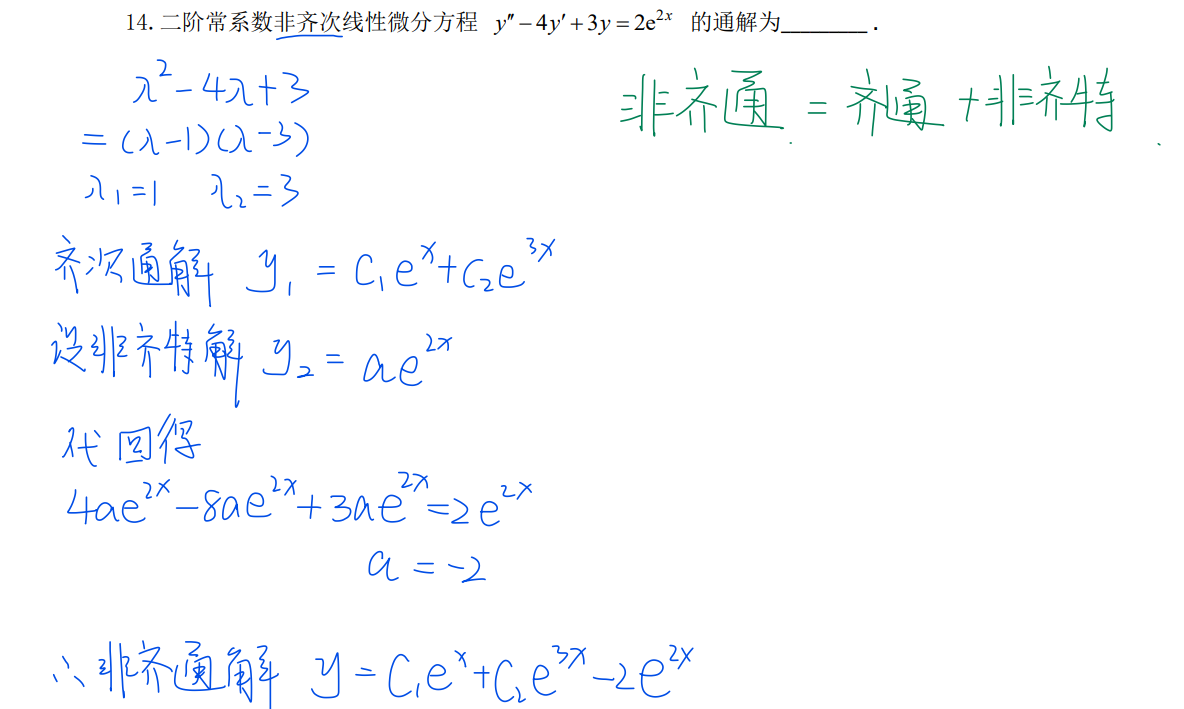 14. 二阶常系数非齐次线性微分方程 y″ − 4y′ + 3y = 2e^{2x} 的通解为________ .
非齐通 = 齐通 + 非齐特
λ² − 4λ + 3
= (λ−1)(λ−3)
λ₁ = 1 λ₂ = 3
齐次通解 y₁ = C₁e^x + C₂e^{3x}
设非齐特解 y₂ = ae^{2x}
代回得
4ae^{2x} − 8ae^{2x} + 3ae^{2x} = 2e^{2x}
a = −2
∴ 非齐通解 y = C₁e^x + C₂e^{3x} − 2e^{2x}